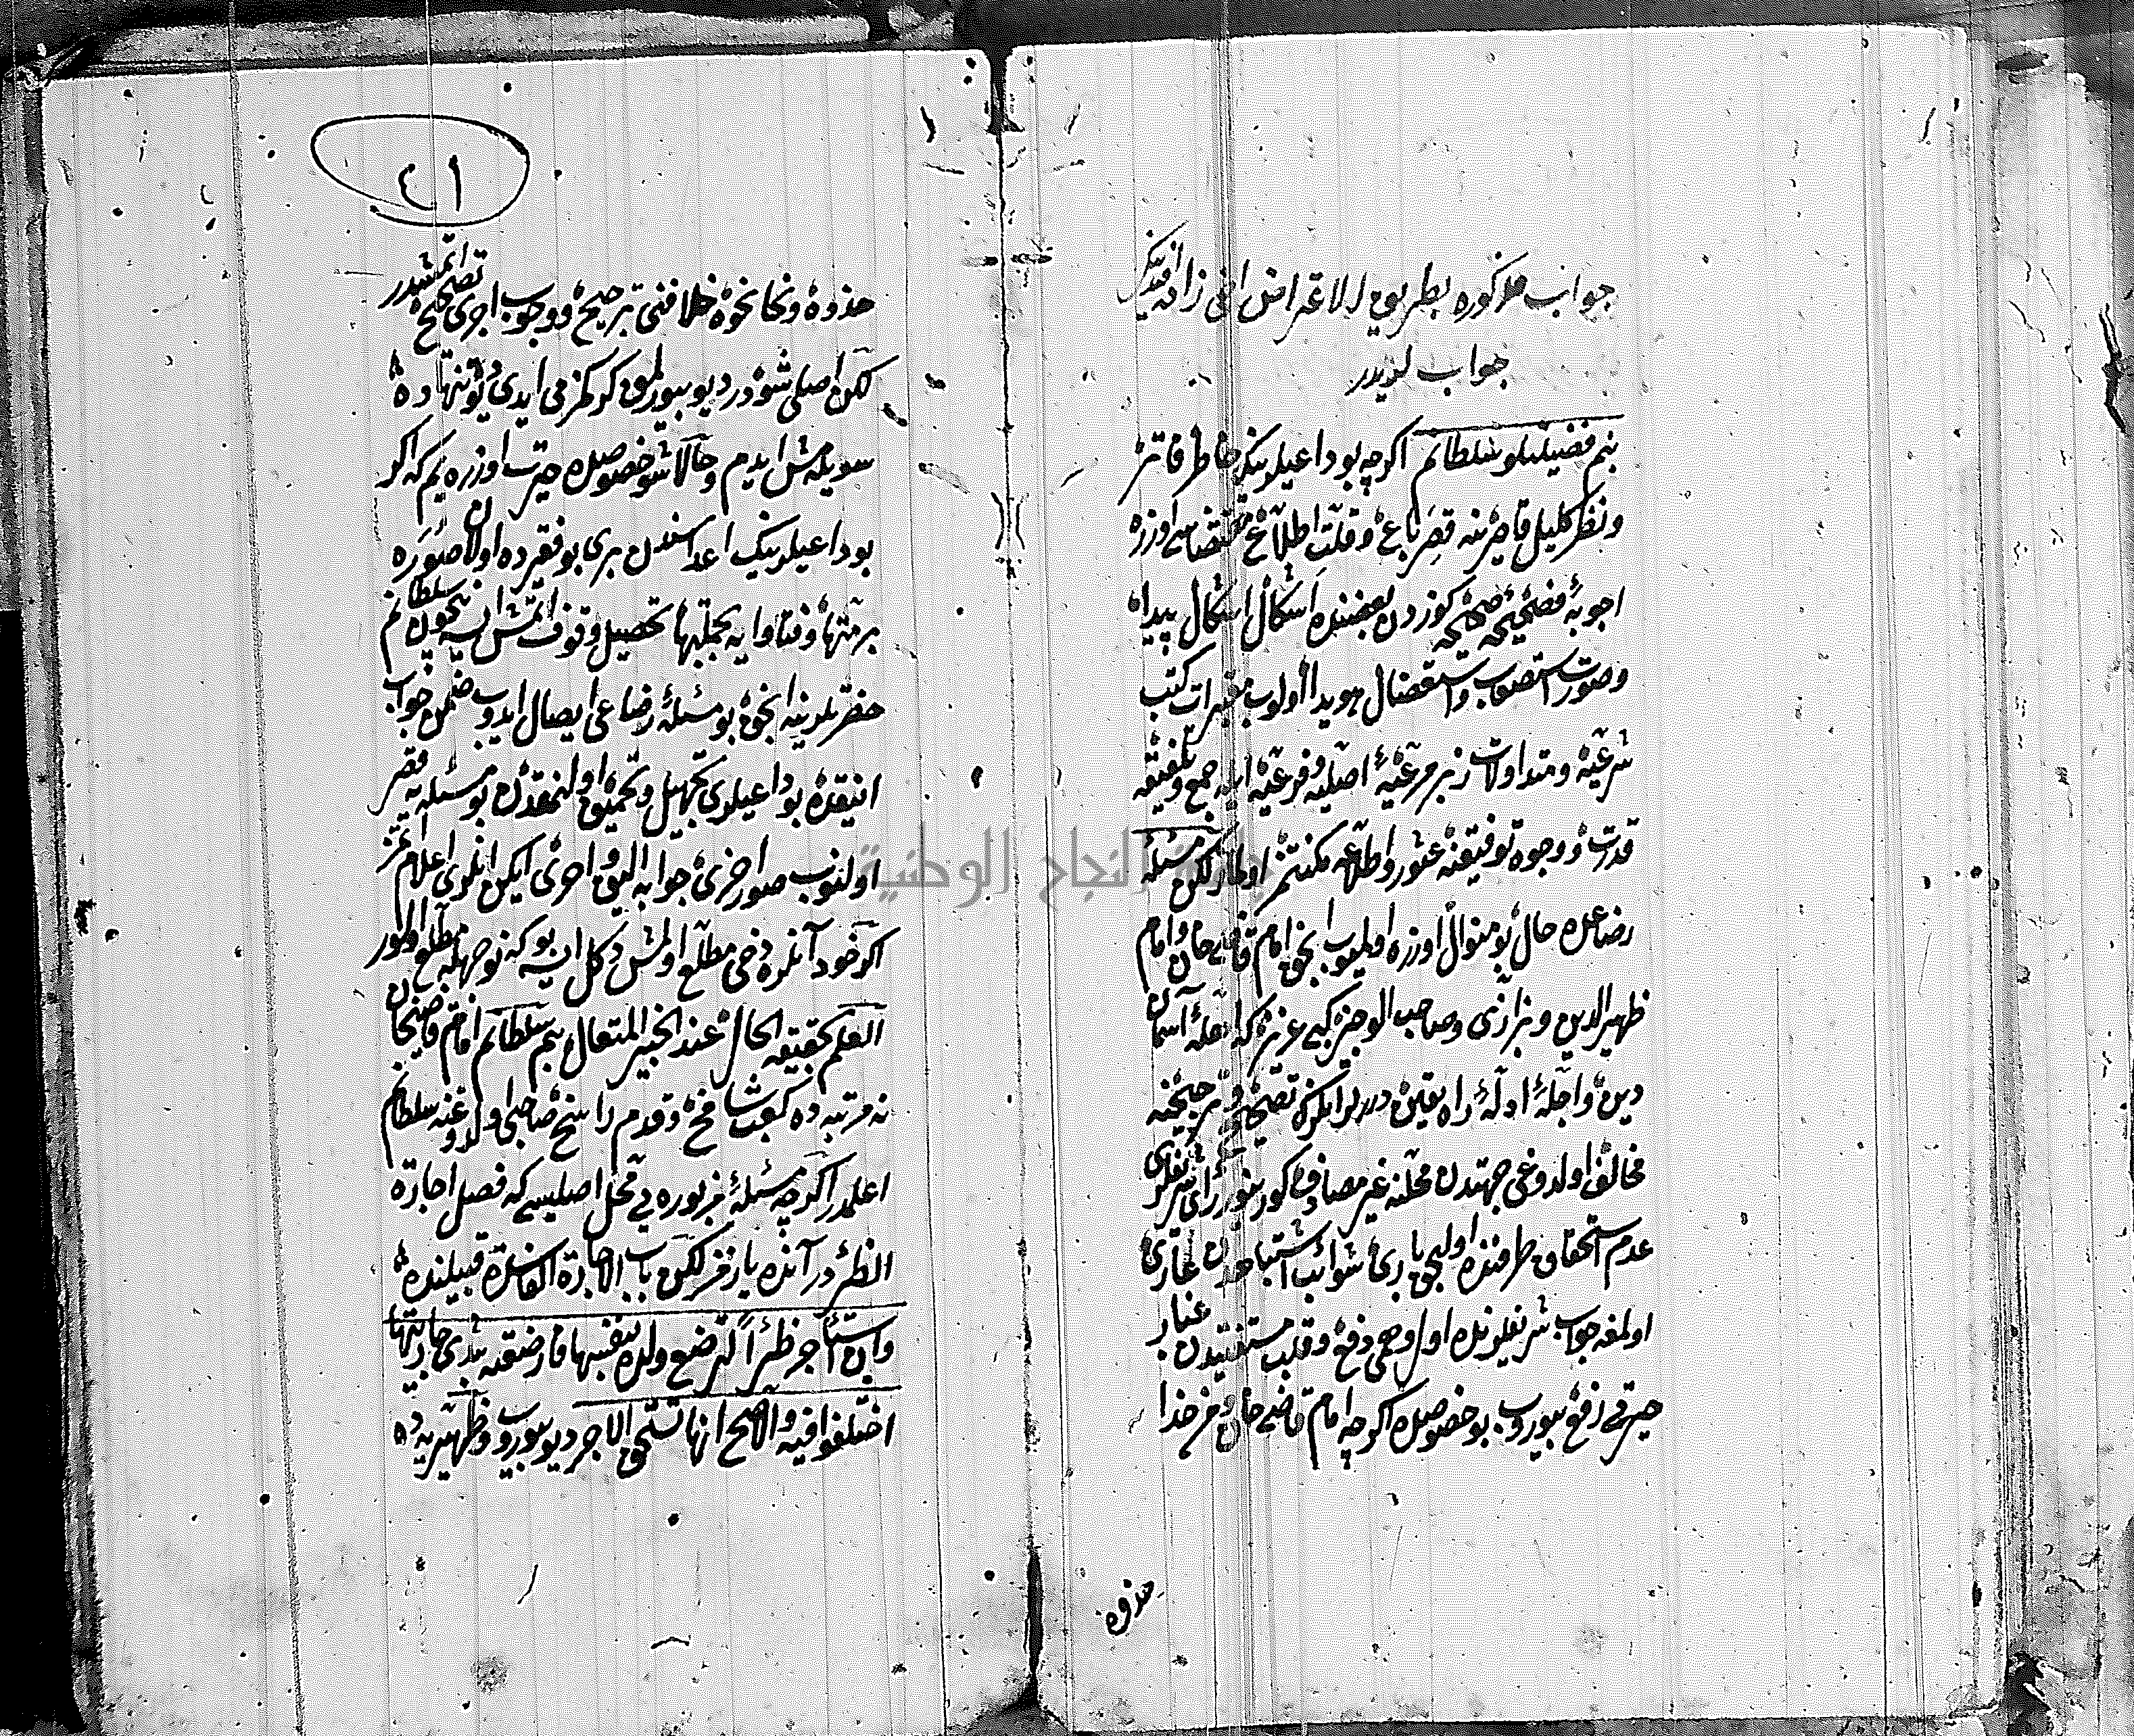 جواب مذكوره بطريق الاعتراض افندينك
جواب لريدر
بنم فضيلتلو سلطانم اكرچه بو داعيلرينك خاطر فاتر
ونظر كليل قاصرينه قصر باع وقلت اطلاع مقتضاسى اوزره
اجوبۀ فصيحۀ صحيحه كوزدن بعضنده اشكال اشكال پيدا
وصورت استصعاب واستعضال هويدا اولوب معتبرات كتب
شرعيه ومتداولات زبر مرعيۀ اصليه وفرعيه ايله جمع وتلفيقه
قدرت ووجوه توفيقنه عثور واطلاعه مكنتمز اولمازلكن مسئلۀ
رضاعده حال بو منوال اوزره اوليوب انجق امام قاضى خان وامام
ظهير الدين وبزازى وصاحب الوجيز كبى عزيزلر كه اهلۀ آسمان
دين واجلۀ ادلۀ راه يقين درلر انلرك تصحيح وترجيحنه
مخالف اولدوغى جهتدن محلنه غير مصادف كورينور رأى شريفلرى
عدم استحقاق طرفنده اوليجق بارى شوائب اشتباهدن عارى
اولمغه جواب شريفلرنده اول وهمى دفع وقلب مستفتيدن غبار
حيرتى رفع بيوروب بو خصوصده اكرچه امام قاضى خان ومن حذا
حذوه
٤١
حذوه ونحا نحوه خلافنى ترجيح ووجوب اجرى تصحيح ايتمشلردر
لكن اصلى شودر ديو بيورلمق كركمز مى ايدى ديو تنهاده
سويلمش ايدم وحالا شو خصوصده حيرت اوزره يم كه اكر
بو داعيلرينك اعداسندن برى بو فقره ده اولان صوره
برمتها وفتاوايه بجملتها تحصيل وقوف ايتمش ايسه نيچون سلطانم
حضرتلرينه انجق بو مسئلۀ رضاعى ايصال ايدوب ضمن جواب
انيقده بو داعيلرى تجهيل وتحميق اولنمقدن بو مسئله يه قصر
اولنوب صور اخرى جوابه اليق واحرى ايكن انلرى اعلام ايتمز
اكر خود آنلره دخى مطلع اولمش دكل ايسه بوكه نه وجهله مطلع اولور
العلم بحقيقة الحال عند الخبير المتعال بنم سلطانم امام قاضيخان
نه مرتبه ده كعب شامخ وقدم راسخ صاحبى اولدوغنه سلطانم
اعلمدر اكرچه مسئلۀ مزبوره يى محل اصليسى كه فصل اجارة
الظئر در آنده يازمز لكن باب الاجارة الفاسدة قبيلنده
وان استأجر ظئراً لترضع ولده بنفسها فارضعته بثدى جاريتها
اختلفوا فيه والاصح انها تستحق الاجر ديو بيوروب وظهيريه ده